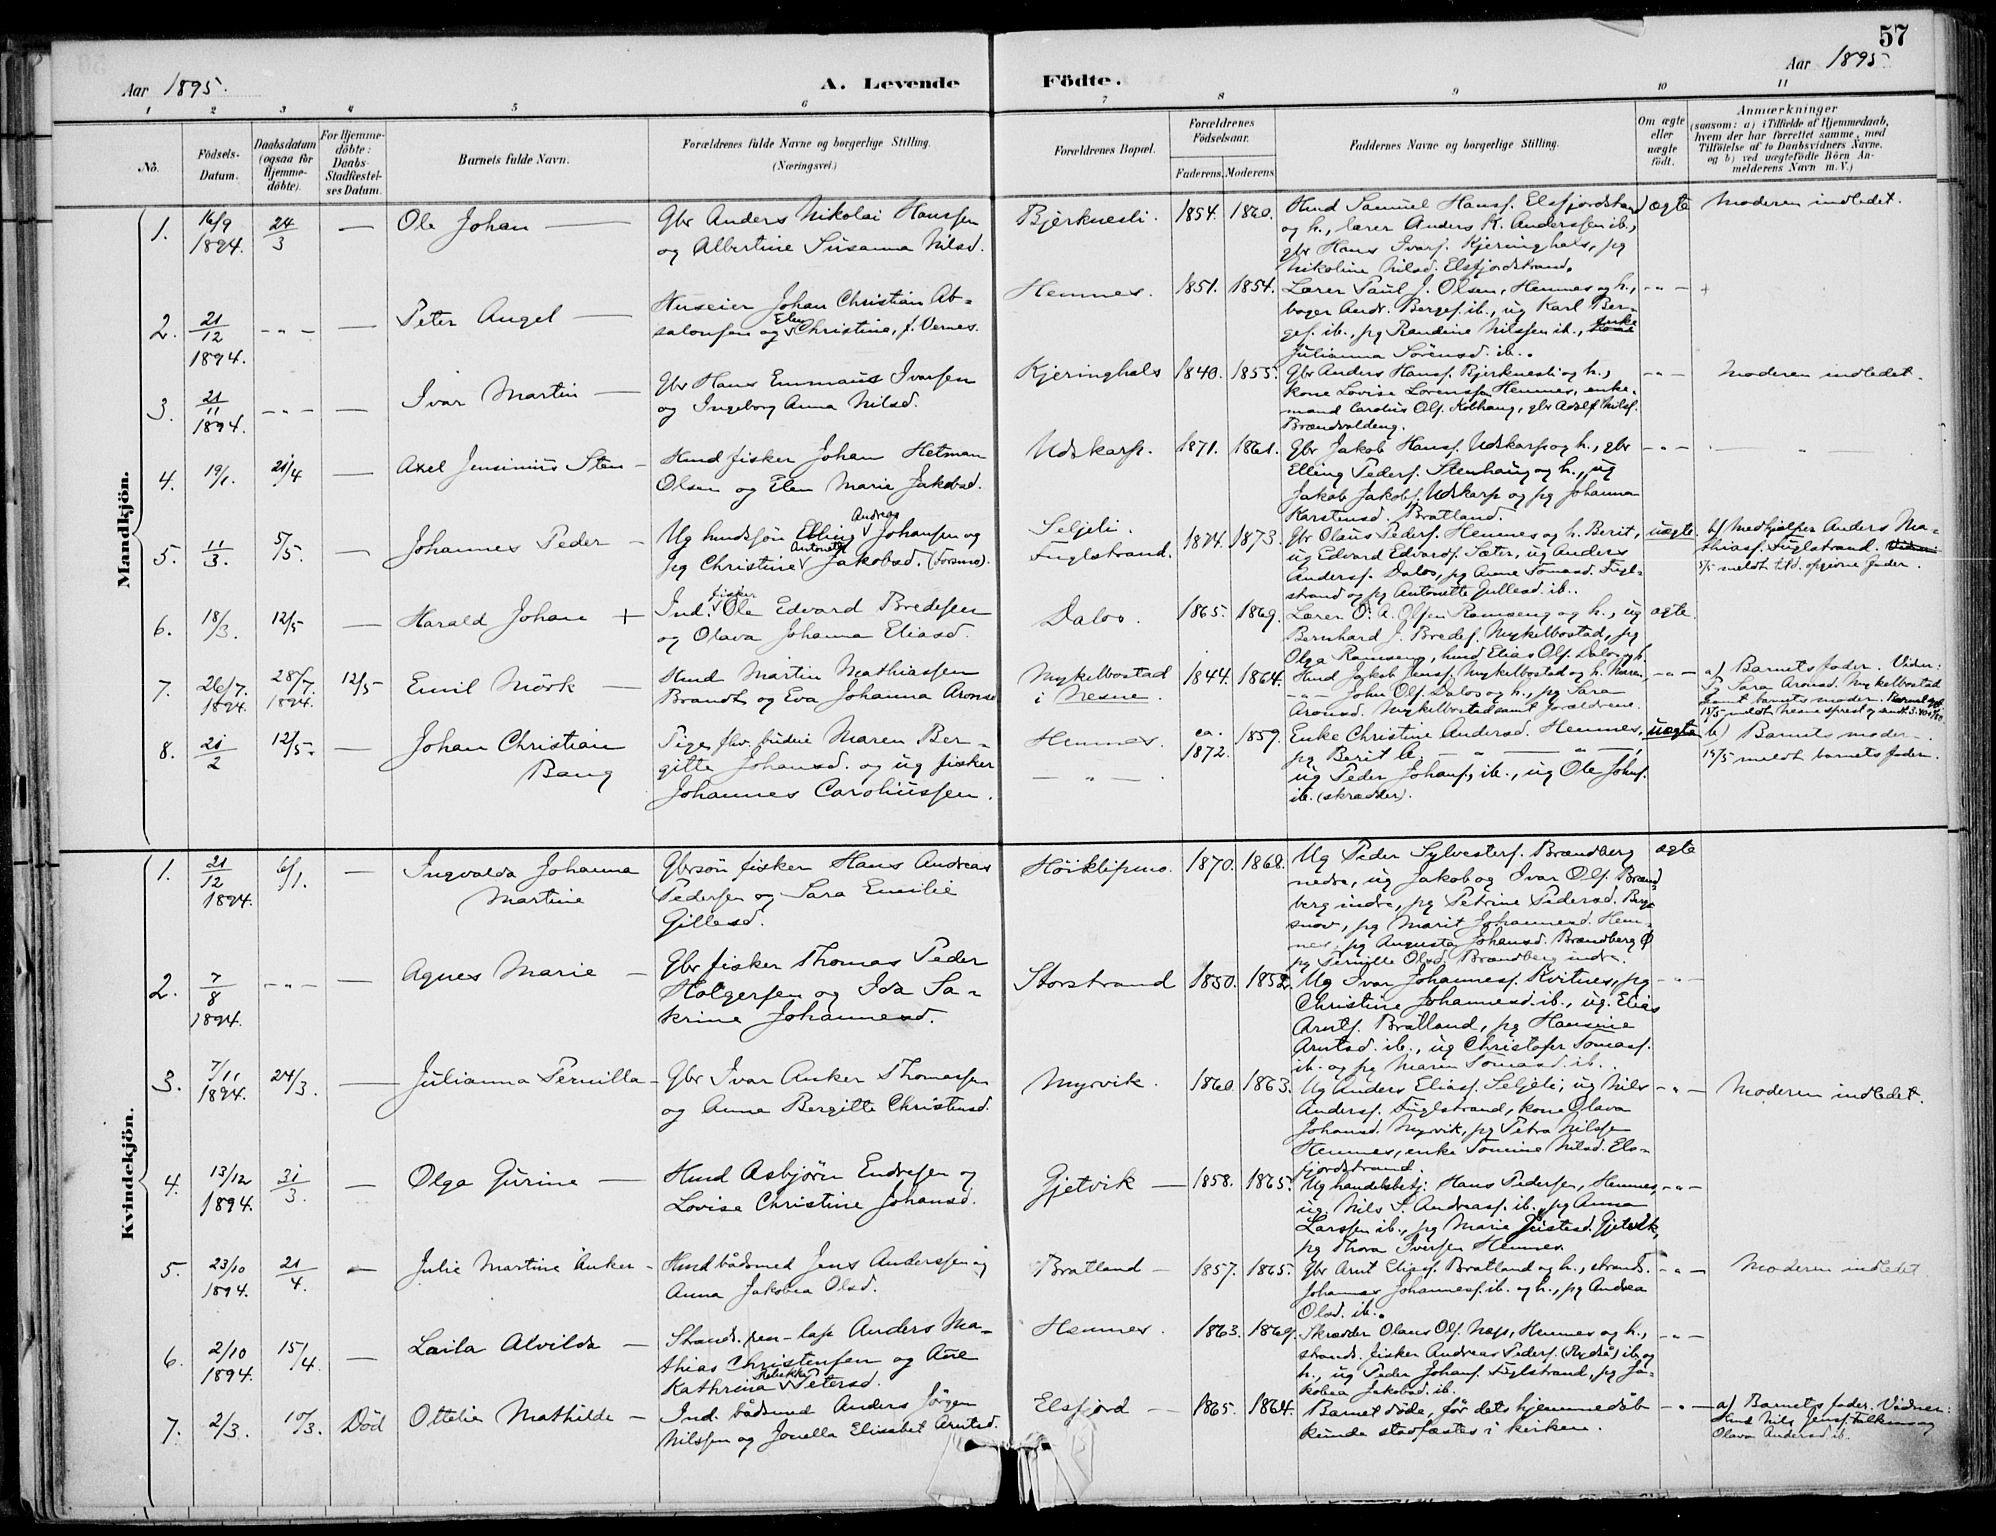 57
Aar 1895.
A. Levende Födte.
Aar 1895
1 2 3 4 5 6 7 8 9 10 11
No.
Födsels-Datum.
Daabsdatum (ogsaa for Hjemmedöbte).
For Hjemmedöbte: Daabs-Stadfæstelses Datum.
Barnets fulde Navn.
Forældrenes fulde Navne og borgerlige Stilling. (Næringsvei.)
Forældrenes Bopæl.
Forældrenes Födselsaar.
Faderens. Moderens.
Faddernes Navne og borgerlige Stilling.
Om ægte eller uægte födt.
Anmærkninger (saasom: a) i Tilfælde af Hjemmedaab, hvem der har forrettet samme, med Tilföielse af to Daabsvidners Navne. og b) ved uægtefödte Börn Anmelderens Navn m. V.)
Mandkjön.
1. 16/9 1894. 24/3 — Ole Johan —
Gbr Anders Nikolai Hanssen
og Albertine Susanna Nilsd.
Bjerknesli. 1854. 1860.
Hmd Samuel Hans. Elsfjordstrand
og h., lærer Anders K. Anderssen ib.,
gbr Hans Ivars. Kjeringhals, pg
Nikoline Nilsd. Elsfjordstrand.
ægte Moderen indledet.
2. 21/12 1894. - " - — Peter Angel —
Huseier Johan Christian Ab-
salonsen og Elen Christine, f. Vernes.
Hemnes. 1851. 1854.
Lærer Paul J. Olsen, Hemnes og h.,
bager Andr. Berges. ib., ug Karl Ber-
ges. ib., pg Randine Nilssen ib., enke
Julianna Sörensd. ib.
- " -
3. 21/11 1894. - " - — Ivar Martin —
Gbr Hans Emmaus Ivarsen
og Ingeborg Anna Nilsd.
Kjeringhals 1840. 1855.
Gbr Anders Hans. Bjerknesli og h.,
kone Lovise Lorenssen Hemnes, enke-
mand Carolius Ols. Kobhaug, gbr Adolf Nils.
Brændvoldeng.
- " - Moderen indledet.
4. 19/1. 21/4 — Axel Jensinius Sten —
Hmd fisker Johan Hetman
Olsen og Elen Marie Jakobsd.
Udskarp. 1871. 1861.
Gbr Jakob Hans. Udskarp og h., gbr
Elling Peders. Stenhaug og h., ug
Jakob Jakobs. Udskarp og pg Johanna
Karstensd. Bratland.
- " - — " —
5. 11/3. 5/5. — Johannes Peder —
Ug husdsön Elling Andreas Johansen og
pg Christine Antonette Jakobsd. (Forsmo).
Seljeli.
Fuglstrand. 1874. 1873.
Gbr Olaus Peders. Hemnes og h. Berit,
ug Edvard Edvards. Sæter, ug Anders
Anders. Dalos, pg Anne Tomasd. Fugl-
strand og pg Antonette Gullesd. ib.
uægte. b) Medhjælper Anders Ma-
thias. Fuglstrand.
5/5 meldt tild. opgivne fader.
6. 18/3. 12/5 — Harald Johan +
Ind. fisker Ole Edvard Bredesen
og Olava Johanna Eliasd.
Dalos. 1865. 1869.
Lærer O. A. Olsen Ramseng og h., ug
Bernhard J. Bredes. Mykelbostad, pg
Olga Ramseng, hmd Elias Ols. Dalos og h.
ægte.
7. 26/7. 1894. 28/7. 1894. 12/5 Emil Mörk —
Hmd Martin Mathiassen
Brandt og Eva Johanna Aronsd.
Mykelbostad
i Nesne. 1844. 1864.
Hmd Jakob Jens. Mykelbostad og h. Maren,
- " - John Ols. Dalos og h., pg Sara
Aronsd. Mykelbostad samt forældrene.
- " - a) Barnets fader. Vidner:
Pg Sara Aronsd. Mykelbostad
samt barnets moder.
8. 21/2 12/5. — Johan Christian
Bang
Pige, fhv. budeie Maren Ber-
gitte Johansd. og ug fisker
Johannes Caroliussen.
Hemnes.
— " —. ca. 1872. 1859.
Enke Christine Andersd. Hemnes,
pg Berit A — " — — " —,
ug Peder Johans., ib., ug Ole Johs.
ib. (skrædder).
uægte b) Barnets moder.
15/5 meldt barnets fader.
Kvindekjön.
1. 21/12 1894. 6/1. — Ingvalda Johanna
Martine
Gbrsön fisker Hans Andreas
Pedersen og Sara Emilie
Gillesd.
Höiklipmo. 1870. 1868.
Ug Peder Sylvesters. Brændberg
nedre, ug Jakob og Ivar Ols. Brænd-
berg indre, pg Petrine Pedersd. Berg-
snov, pg Marit Johannesd. Hem-
nes, pg Augusta Johansd. Brændberg Ö
pg Pernille Olsd. Brændberg indre.
ægte
2. 7/8 1894. - " - — Agnes Marie —
Gbr fisker Thomas Peder
Holgersen og Ida Sa-
krine Johannesd.
Storstrand 1850. 1852.
Ug Ivar Johannes. Kvitnes, pg
Christine Johannesd. ib., ug. Elias
Arnts. Bratland, pg Hansine
Arntsd. ib., ug Christofer Tomas.
ib. og pg Maren Tomasd. ib.
- " -
3. 7/11 1894. 24/3. — Julianna Pernilla —
Gbr Ivar Anker Thomassen
og Anne Bergitte Christensd.
Myrvik. 1860. 1863.
Ug Anders Elias. Seljeli, ug Nils
Anders. Fuglstrand, kone Olava
Johansd. Myrvik, pg Petra Nilssen
Hemnes, enke Tomine Nilsd. Els-
fjordstrand.
- " - Moderen indledet.
4. 13/12 1894. 31/3. — Olga Gurine —
Hmd Asbjörn Endresen og
Lovise Christine Johansd.
Gjetvik — 1858. 1865.
Ug handelsbetj. Hans Pedersen, Hemnes,
ug. Nils S. Andreas. ib., pg Anna
Larssen ib., pg Marie Jristesd. Gjetvik,
pg Thora Iversen Hemnes.
- " -
5. 23/10 1894. 21/4. — Julie Martine Anker —
Hmd bådsmed Jens Anderssen og
Anna Jakobea Olsd.
Bratland — 1857. 1865.
Gbr Arnt Elias. Bratland og h., strands.
Johannes Johannes. ib. og h., pg Andrea
Olsd. ib.
- " - Moderen indledet
6. 2/10 1894. 15/4. — Laila Alvilda —
Strands. ren-lap Anders Ma-
thias Christensen og Ane
Kathrina Rebekka Petersd.
Hemnes. 1863. 1869.
Skrædder Olaus Ols. Næss, Hemnes og h.,
strands. fisker Andreas Peders. (Rödå) ib. og
h., ug Peder Johans. Fuglstrand, pg Ja-
kobea Jakobsd. ib.
- " -
7. 2/3. 10/3. Död Ottelie Mathilde —
Ind. bådsmed Anders Jörgen
Nilssen og Jonella Elisabet Arntsd.
Elsfjord — 1865. 1864.
Barnet döde, för dets hjemmedåb
kunde stadfæstes i kirken.
- " - a) Barnets fader. Vidner:
Hmd Nils Jens. Falkmo og
Olava Andersd. ib.